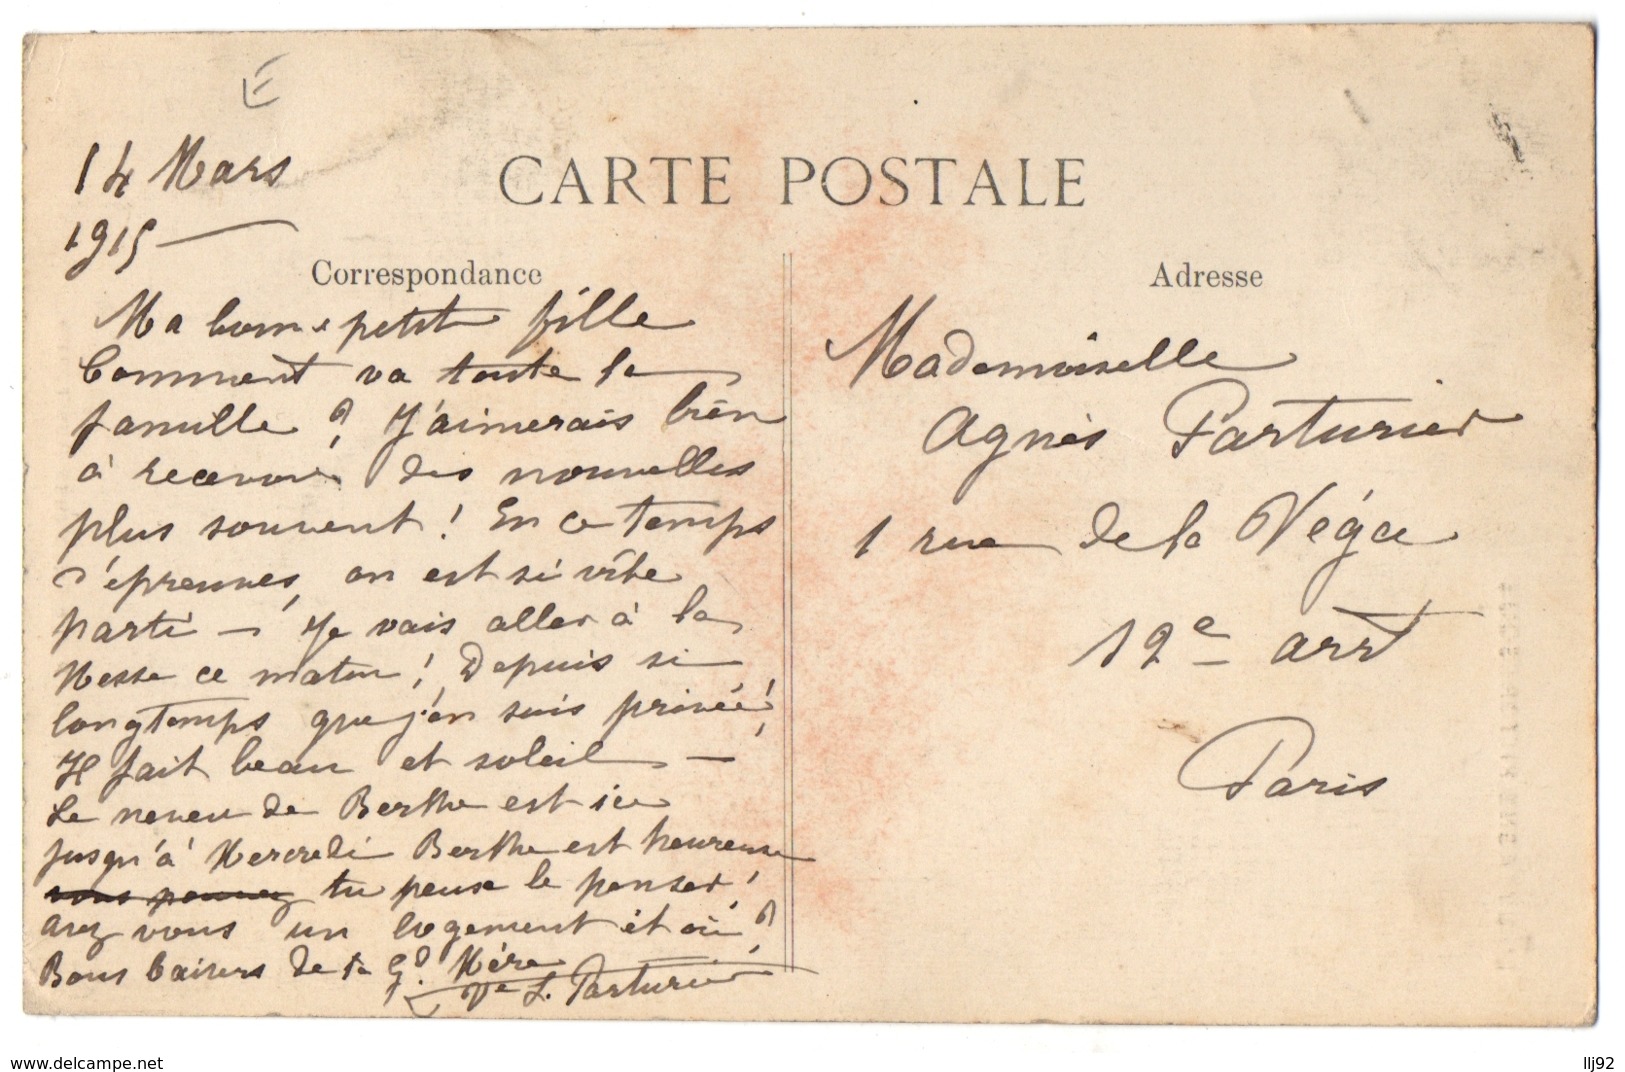 14 Mars
1915
CARTE POSTALE
Correspondance
Ma bonne petite fille
Comment va toute la
famille ? J'aimerais bien
à recevoir des nouvelles
plus souvent ! En ce temps
d'épreuves, on est si vite
parti – Je vais aller à la
Messe ce matin ! Depuis si
longtemps que j'en suis privée !
Il fait beau et soleil –
Le neveu de Berthe est ici
jusqu'à Mercredi Berthe est heureuse
vous pouvez tu peux le penser !
avez vous un logement et où ?
Bons baisers de ta Gd. Mère
Ve L. Parturier
Adresse
Mademoiselle
Agnès Parturier
1 rue de la Véga
12e arrt
Paris
www.delcampe.net
llj92